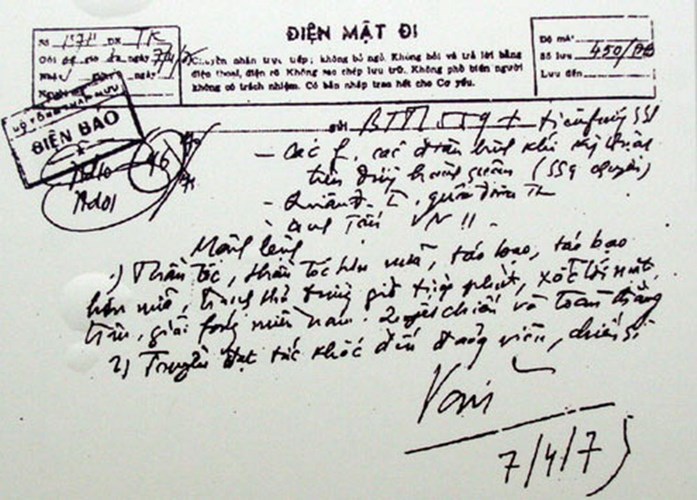 ĐIỆN MẬT ĐI
Số 1574 ĐK TK
ngày 7/4/75
Chuyển nhận trực tiếp; không bỏ ngỏ. Không hỏi và trả lời bằng
điện thoại, điện rõ Không sao chép lưu trữ. Không phổ biến người
không có trách nhiệm. Có bản nháp trao hết cho Cơ yếu.
Độ mật
Số lưu 450/ĐB
Lưu đến
BỘ TỔNG THAM MƯU
ĐIỆN BÁO
46
gửi BTM 559 + tiền phương 559
- Các f, các đơn vị binh khí kỹ thuật
trên đường hành quân (559 chuyển)
- Quân Đ. 1, quân đoàn
Mệnh lệnh
1) Thần tốc, thần tốc hơn nữa, táo bạo, táo bạo
hơn nữa, tranh thủ từng giờ từng phút, xốc tới mặt
trận, giải fóng miền nam. Quyết chiến và toàn thắng
2) Truyền đạt tức khắc đến đảng viên, chiến sĩ
Văn
7/4/75